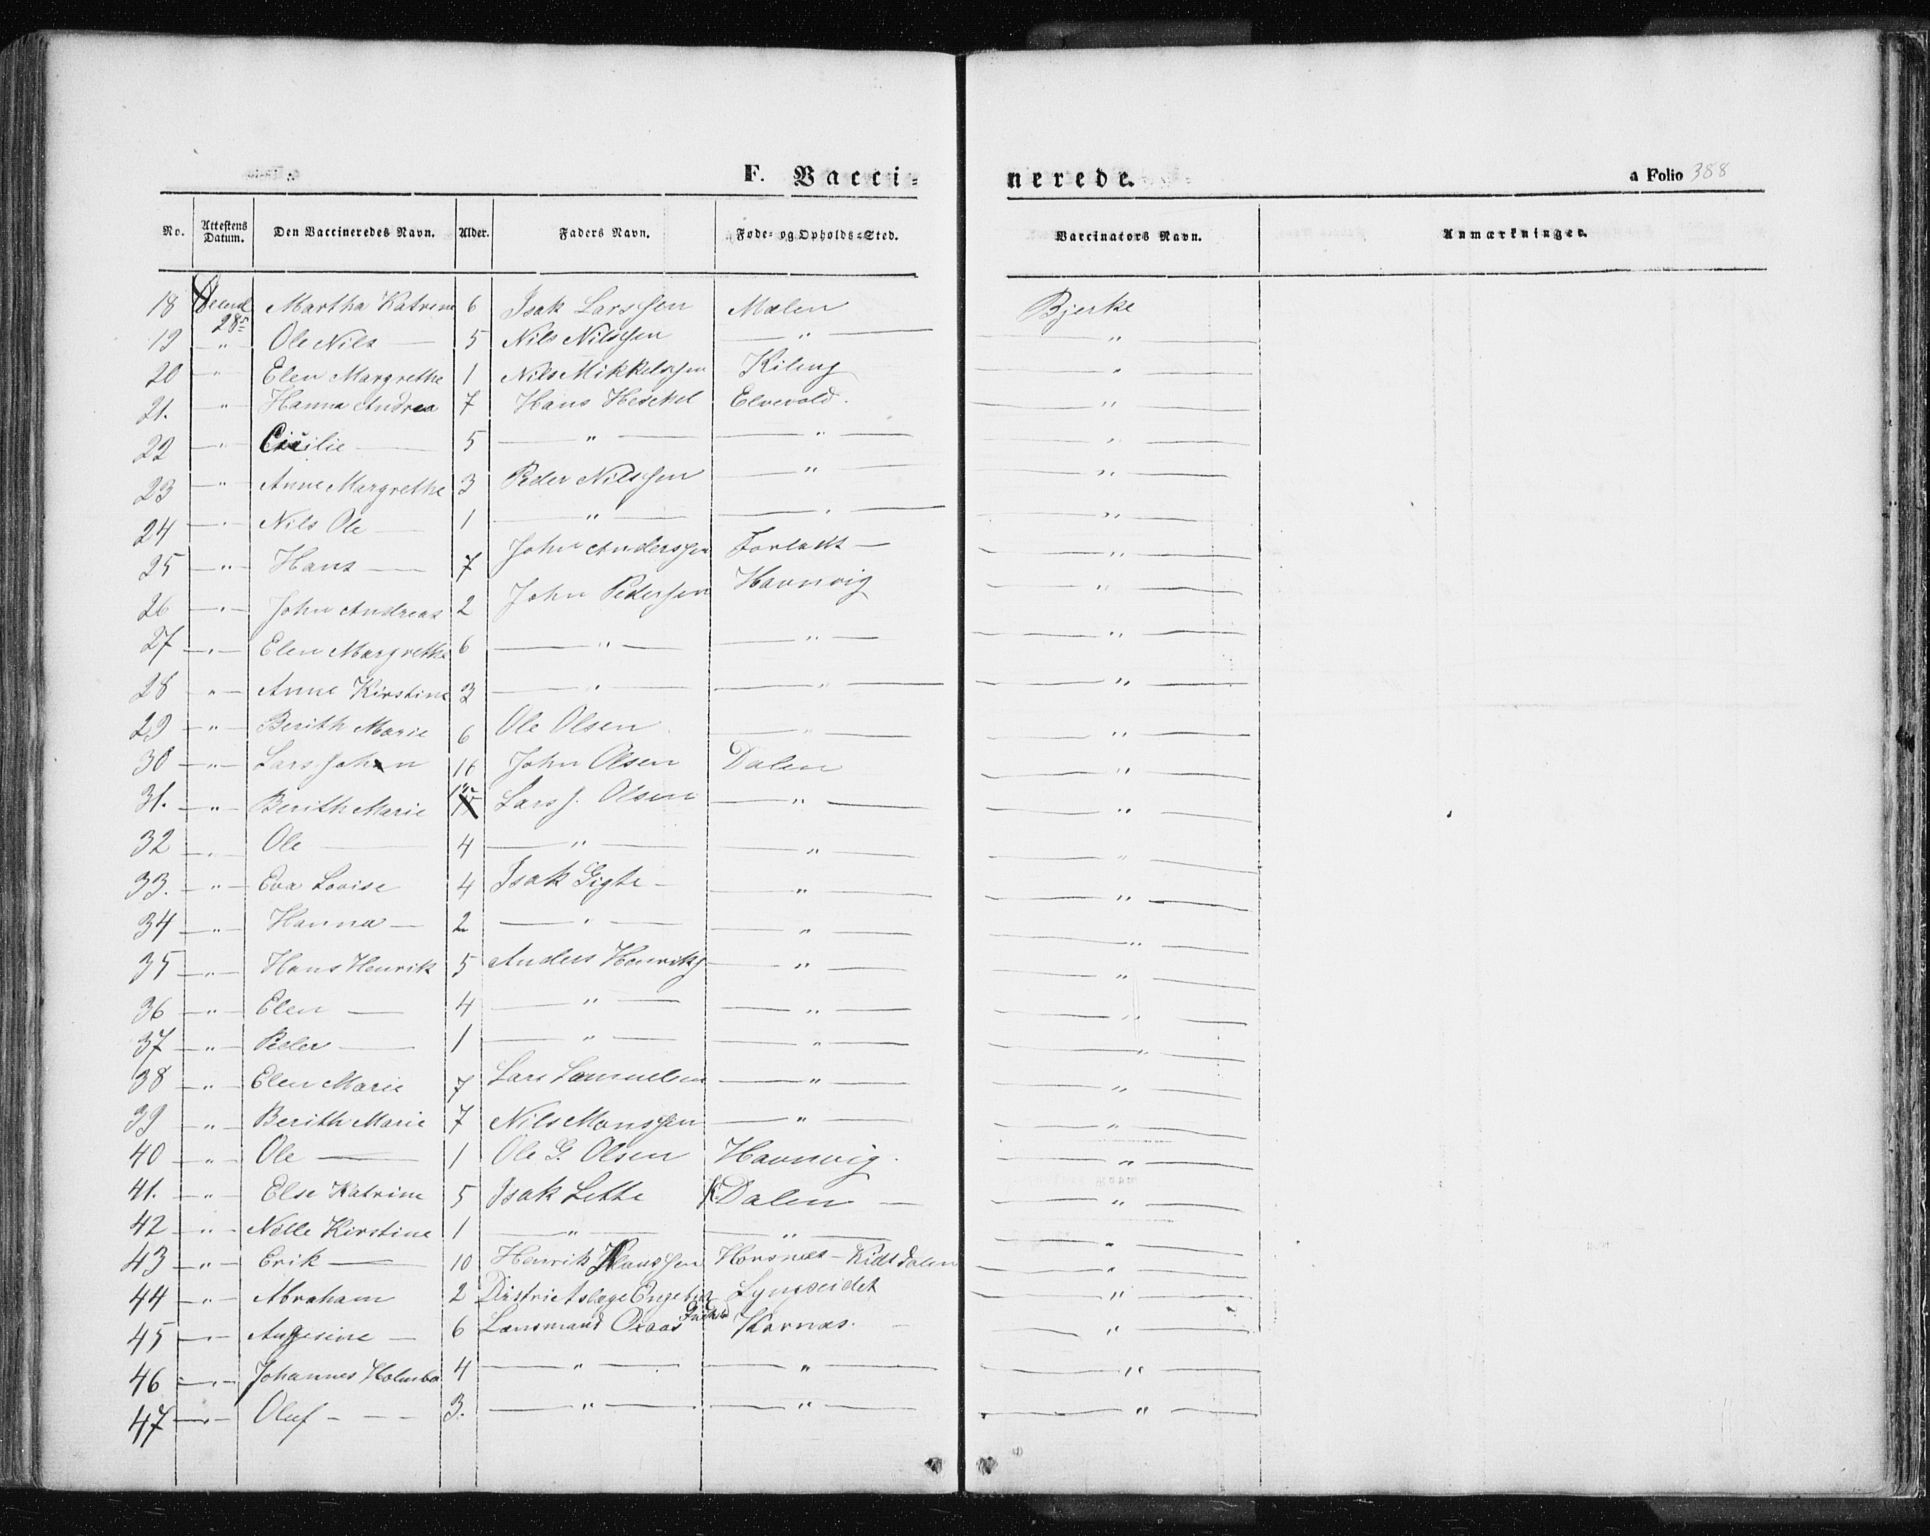 F. Vacci- nerede. a Folio 388
No. Attestens Datum. Den Vaccineredes Navn. Alder. Faders Navn. Føde- og Opholds-Sted. Vaccinators Navn. Anmærkninger.
18 28 Martha Katrine 6 Isak Larssen Mælen Bjerke
19 " Ole Nils — 5 Nils Nilssen — " — — " —
20 " Elen Margrethe 1 Nils Mikkelssen Kileng — " —
21. " Hanna Andrea 7 Hans Heskel Elvevold. — " —
22 " Cicilie — 5 — " — — " — — " —
23 " Anne Margrethe 3 Peder Nilssen — " — — " —
24 " Nils Ole — 1 — " — — " — — " —
25 " Hans — 7 John Anderssen — — " —
26 " John Andreas 2 John Pederssen Havnvig — " —
27 " Elen Margrethe 6 — " — — " — — " —
28 " Anne Kirstine 3 — " — — " — — " —
29 " Berith Marie 6 Ole Olsen — " — — " —
30 " Lars Johan John Olsen Dalen — " —
31. " Berith Marie Lars J. Olsen — " — — " —
32 " Ole — 4 — " — — " — — " —
33. " Eva Lovise 4 Isak Gigte — — " — — " —
34 " Hanna — 2 — " — — " — — " —
35 " Hans Henrik 5 Anders Henriks — " — — " —
36 " Elen — 4 — " — — " — — " —
37 " Peder — 1 — " — — " — — " —
38 " Elen Marie 7 Lars Samuelsen — " — — " —
39 " Berith Marie 7 Nils Monssen — " — — " —
40 " Ole — 1 Ole G. Olsen Havnvig. — " —
41. " Else Katrine 5 Isak Lette K. Dalen — — " —
42 " Nelle Kirstine 1 — " — — " — — " —
43 " Erik — 10 Henrik Hanssen Horsnæs - Kidtdalen — " —
44 " Abraham 2 Districtslæge Lyngseidet — " —
45 " Angesine — 6 Lænsmand Oxaas Karnæs. — — " —
46 " Johannes Holmbo 4 — " — — " — — " —
47 " Oluf - — 3. — " — — " — — " —